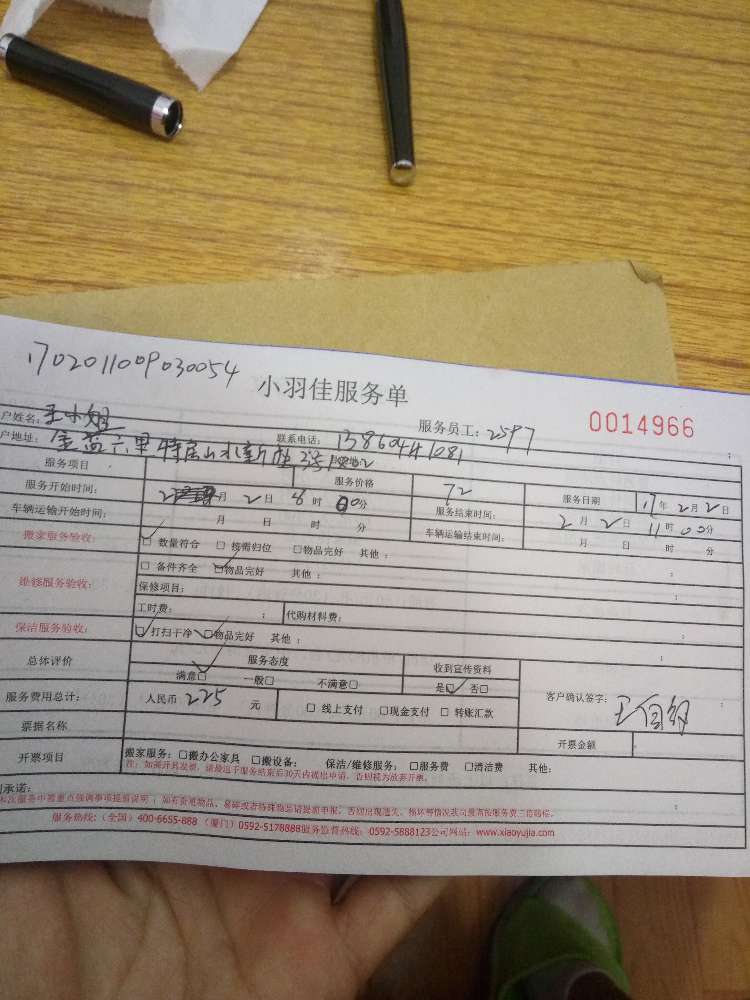 170201109030054
小羽佳服务单
0014966
户姓名: 王小姐
服务员工: 2597
户地址: 金益六里特房山水新座
联系电话: 13860441081
服务项目
服务价格 72
服务日期 17年2月2日
服务开始时间: 2月2日8时00分
服务结束时间: 2月2日11时00分
车辆运输开始时间: 月 日 时 分
车辆运输结束时间: 月 日 时 分
搬家服务验收: ☑数量符合 □接需归位 □物品完好 其他:
维修服务验收: □备件齐全 ☑物品完好 其他:
保修项目:
工时费: 代购材料费:
保洁服务验收: ☑打扫干净 ☑物品完好 其他:
总体评价
服务态度
收到宣传资料
满意☑ 一般□ 不满意□
是☑ 否□
客户确认签字:
服务费用总计: 人民币 225 元 □ 线上支付 □现金支付 □ 转账汇款
票据名称
开票金额
开票项目
搬家服务: □搬办公家具 □搬设备: 保洁/维修服务: □服务费 □清洁费 其他:
注: 如需开具发票, 请最迟于服务结束后30天内提出申请, 否则视为放弃开票。
承诺:
本次服务中需重点强调事项提前说明: 如有贵重物品、易碎或者特殊物品请提前申报, 否则出现遗失、损坏等情况我司最高按服务费三倍赔偿。
服务热线: (全国) 400-6655-888 (厦门) 0592-5178888服务监督热线: 0592-5888123公司网站: www.xiaoyujia.com